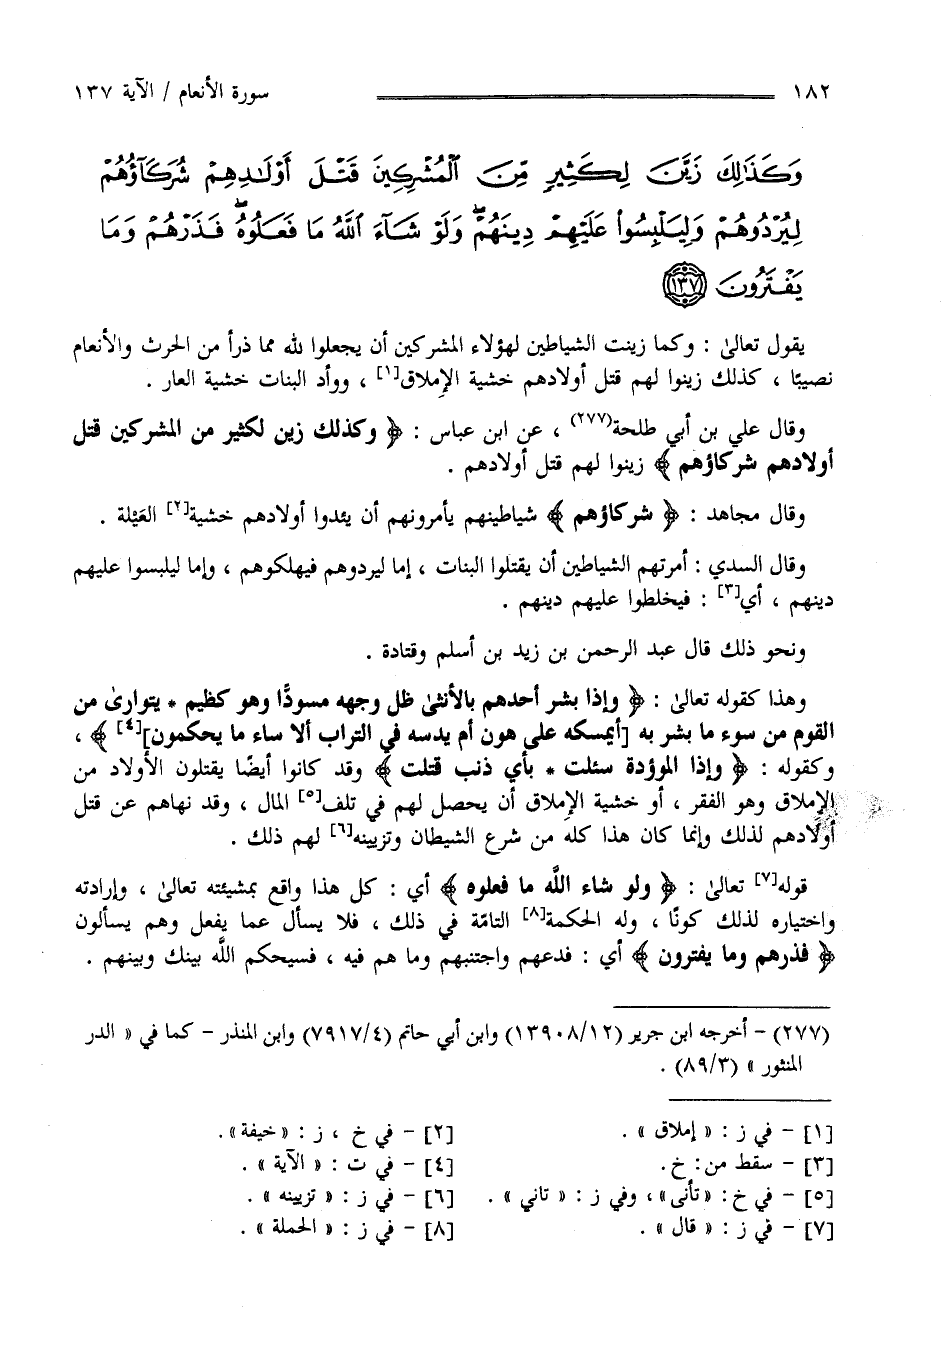 ١٨٢ سورة الأنعام / الآية ١٣٧
وَكَذَٰلِكَ زَيَّنَ لِكَثِيرٍ مِّنَ ٱلْمُشْرِكِينَ قَتْلَ أَوْلَٰدِهِمْ شُرَكَآؤُهُمْ
لِيُرْدُوهُمْ وَلِيَلْبِسُوا۟ عَلَيْهِمْ دِينَهُمْ ۖ وَلَوْ شَآءَ ٱللَّهُ مَا فَعَلُوهُ ۖ فَذَرْهُمْ وَمَا
يَفْتَرُونَ ١٣٧
يقول تعالىٰ : وكما زينت الشياطين لهؤلاء المشركين أن يجعلوا لله مما ذرأ من الحرث والأنعام
نصيبًا ، كذلك زينوا لهم قتل أولادهم خشية الإملاق[١] ، ووأد البنات خشية العار .
وقال علي بن أبي طلحة(٢٧٧) ، عن ابن عباس : ﴿ وكذلك زين لكثير من المشركين قتل
أولادهم شركاؤهم ﴾ زينوا لهم قتل أولادهم .
وقال مجاهد : ﴿ شركاؤهم ﴾ شياطينهم يأمرونهم أن يئدوا أولادهم خشية[٢] العَيْلة .
وقال السدي : أمرتهم الشياطين أن يقتلوا البنات ، إما ليردوهم فيهلكوهم ، وإما ليلبسوا عليهم
دينهم ، أي[٣] : فيخلطوا عليهم دينهم .
ونحو ذلك قال عبد الرحمن بن زيد بن أسلم وقتادة .
وهذا كقوله تعالىٰ : ﴿ وإذا بشر أحدهم بالأنثىٰ ظل وجهه مسودًّا وهو كظيم * يتوارىٰ من
القوم من سوء ما بشر به [أيمسكه علىٰ هون أم يدسه في التراب ألا ساء ما يحكمون][٤] ﴾ ،
وكقوله : ﴿ وإذا الموؤدة سئلت * بأي ذنب قتلت ﴾ وقد كانوا أيضًا يقتلون الأولاد من
الإملاق وهو الفقر ، أو خشية الإملاق أن يحصل لهم في تلف[٥] المال ، وقد نهاهم عن قتل
أولادهم لذلك وإنما كان هذا كله من شرع الشيطان وتزيينه[٦] لهم ذلك .
قوله[٧] تعالىٰ : ﴿ ولو شاء اللَّه ما فعلوه ﴾ أي : كل هذا واقع بمشيئته تعالىٰ ، وإرادته
واختياره لذلك كونًا ، وله الحكمة[٨] التامّة في ذلك ، فلا يسأل عما يفعل وهم يسألون
﴿ فذرهم وما يفترون ﴾ أي : فدعهم واجتنبهم وما هم فيه ، فسيحكم اللَّه بينك وبينهم .
(٢٧٧) - أخرجه ابن جرير (١٣٩٠٨/١٢) وابن أبي حاتم (٧٩١٧/٤) وابن المنذر - كما في « الدر
المنثور » (٨٩/٣) .
[١] - في ز : « إملاق » . [٢] - في خ ، ز : «خيفة» .
[٣] - سقط من: خ. [٤] - في ت : « الآية » .
[٥] - في خ: «تأنى»، وفي ز : « تاني » . [٦] - في ز : « تزيينه » .
[٧] - في ز : « قال » . [٨] - في ز : « الحملة » .